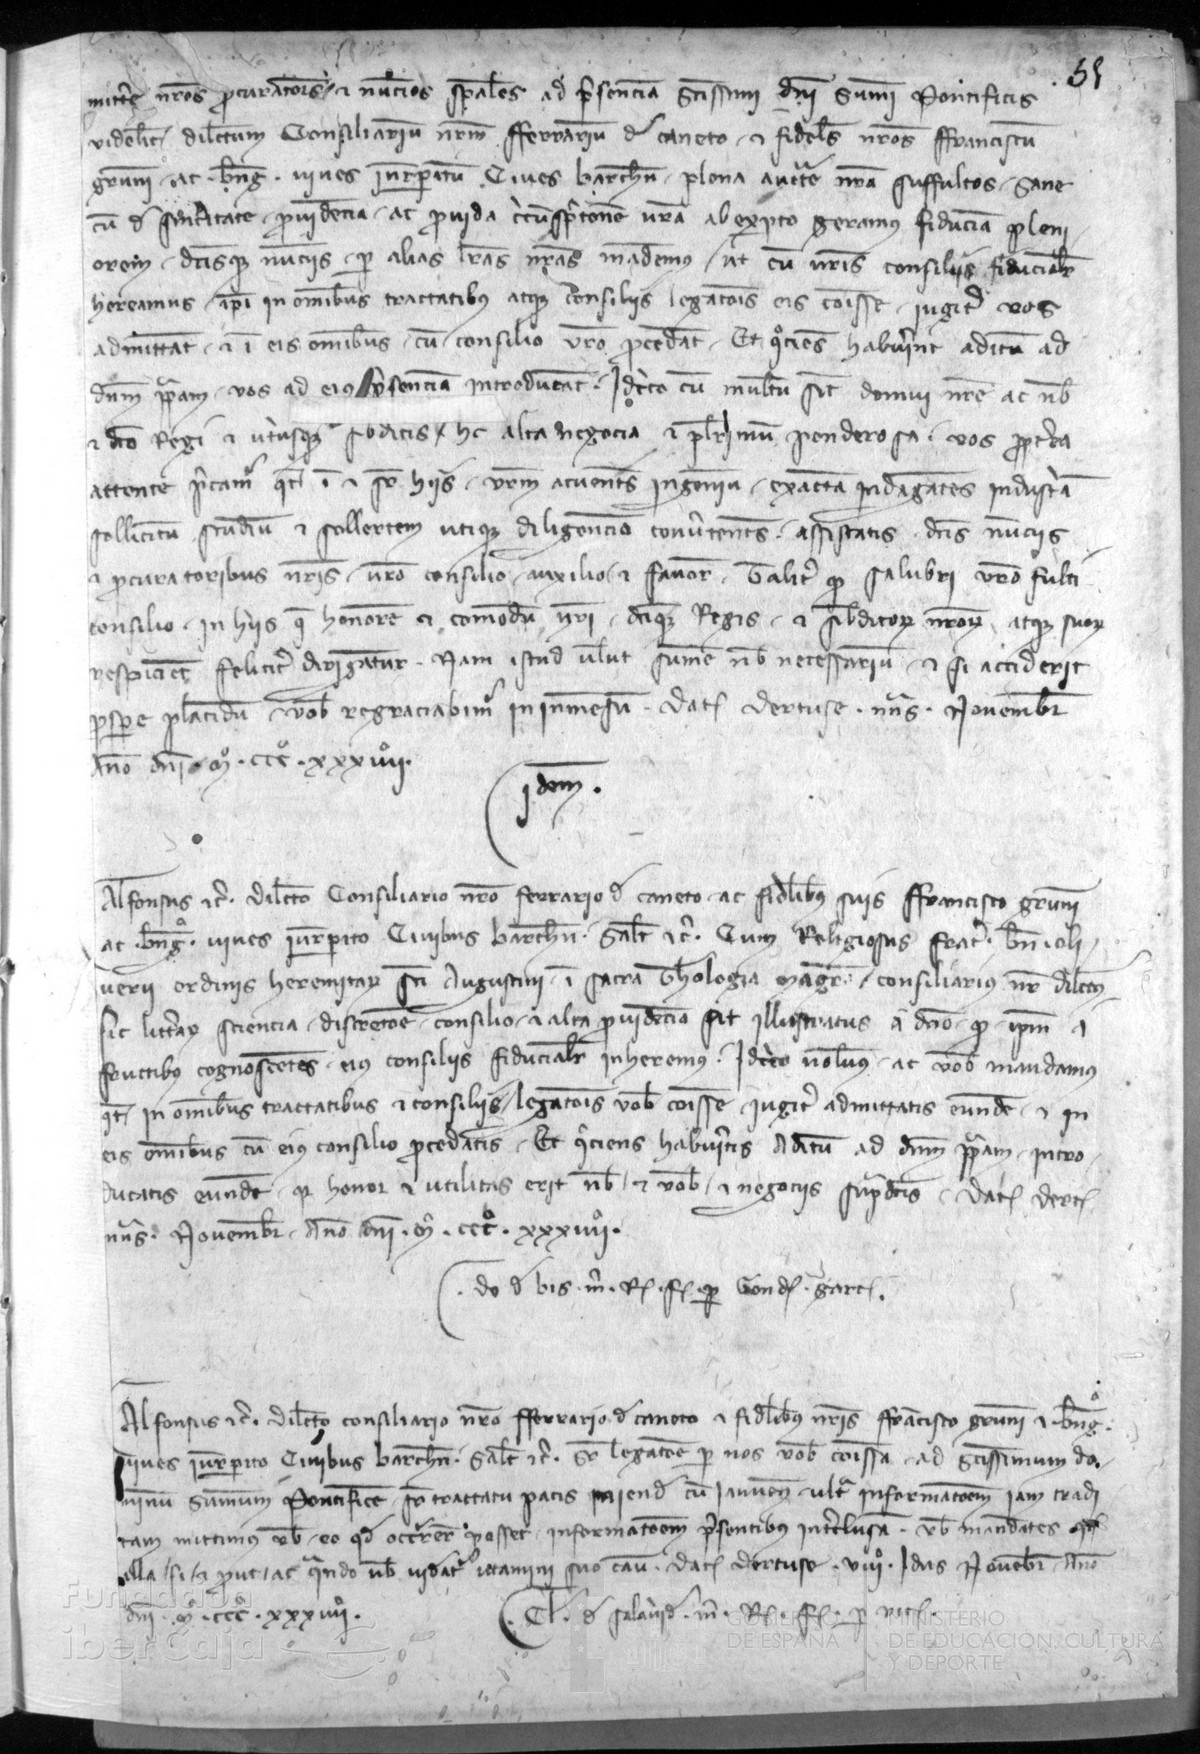 51
mittere nr̄os procuratores & nuncios spāles ad p̄senciā sc̄issimi dn̄i Summi Pontificis
videlict dilectum Consiliariū nr̄m fferrariū de Caneto & fideles nr̄os ffranciscū
gruni ac bn̄g. vives iurisperitū Cives barchn̄ plena auctē nr̄a suffultos Sane
cū de prouidencia ac prouida vr̄a ab experto geramus fiduciā pleni
orem dc̄isq nunciis p alias lr̄as nr̄as mādemus ut cū vr̄is consiliis fiducialr̄
hereamus ip̄i in omnibus tractatibus atq consiliis legacōis eis cōisse iugiter vos
admittat & ī eis omnibus cū consilio vr̄o procedāt Et qociēs habuerint aditū ad
dn̄m papam vos ad eius p̄senciā introducāt Idcirco cū multū sit domui nr̄e ac nob
& dc̄o Regi & utriusq subditis hec alta negocia & plurimū ponderosa vos propterea
attente precamur qt ī & sr̄ hiis vr̄m acuentes ingeniū exactā indagantes industriā
sollicitū studiū & sollertem utiq diligenciā conuertentes assistatis dc̄is nunciis
& procuratoribus nr̄is vr̄o consilio auxilio & fauore Taliter q salubri vr̄o fulti
consilio in hiis q honorē & comodū nr̄i dc̄iq Regis & subditor nr̄or atq suor
respiciet feliciter dirigātur Nam istud velut summe nob necessariū & si acciderit
prospere placidū vob regraciabimur in inmensū Dat Dertuse nn̄s Novembr̄
Anno dn̄i mº cccº xxxiiiiº
Idem.
Alfonsus &c. Dilecto Consiliario nr̄o ferrario de Caneto ac fidelibus suis ffrancisco gruni
ac bn̄g. vives iurisperito Civibus barchn̄ Salt &c. Cum Religiosus frater bn̄ oli
uerii ordinis heremitar sc̄i Augustini ī sacra Theologia magr consiliarius nr̄ dilectus
sic litterar sciencia discretōe consilio & alta prouidencia sit illustratus a dc̄o q ip̄m a
fructibus cognoscētes eius consiliis fiducialr̄ inheremus Idcirco volumus ac vob mandamus
qt in omnibus tractatibus & consiliis legacōis vob cōisse iugiter admittatis eunde & in
eis omnibus cū eius consilio procedatis Et qociens habueritis aditū ad dn̄m papam intro
ducatis eunde q honor & utilitas erit nob & vob & negociis supradc̄is Dat Dert
nn̄s Novembr̄ Anno dn̄i mº cccº xxxiiiiº
Alfonsus &c. Dilecto consiliario nr̄o fferrario de Caneto & fidelibus nr̄is ffrancisco gruni & bn̄g.
vives iurisperito Civibus barchn̄ Salt &c. Sr̄ legacōe p nos vob cōissa ad sc̄issimum do
minū Summum Pontificē sr̄ tractatu pacis iniend cū Januen ultra informacōem iam tradi
tam mittimus vob eo qd occurrere posset informacōem p̄sentibus interclusā vob mandates qt
illa si & prout ac quando vob videatur utamini suo casu Dat Dertuse viiiº Idus Novembr̄ Anno
dn̄i mº cccº xxxiiiiº
Fundación
iberCaja
GOBIERNO
DE ESPAÑA
MINISTERIO
DE EDUCACIÓN, CULTURA
Y DEPORTE